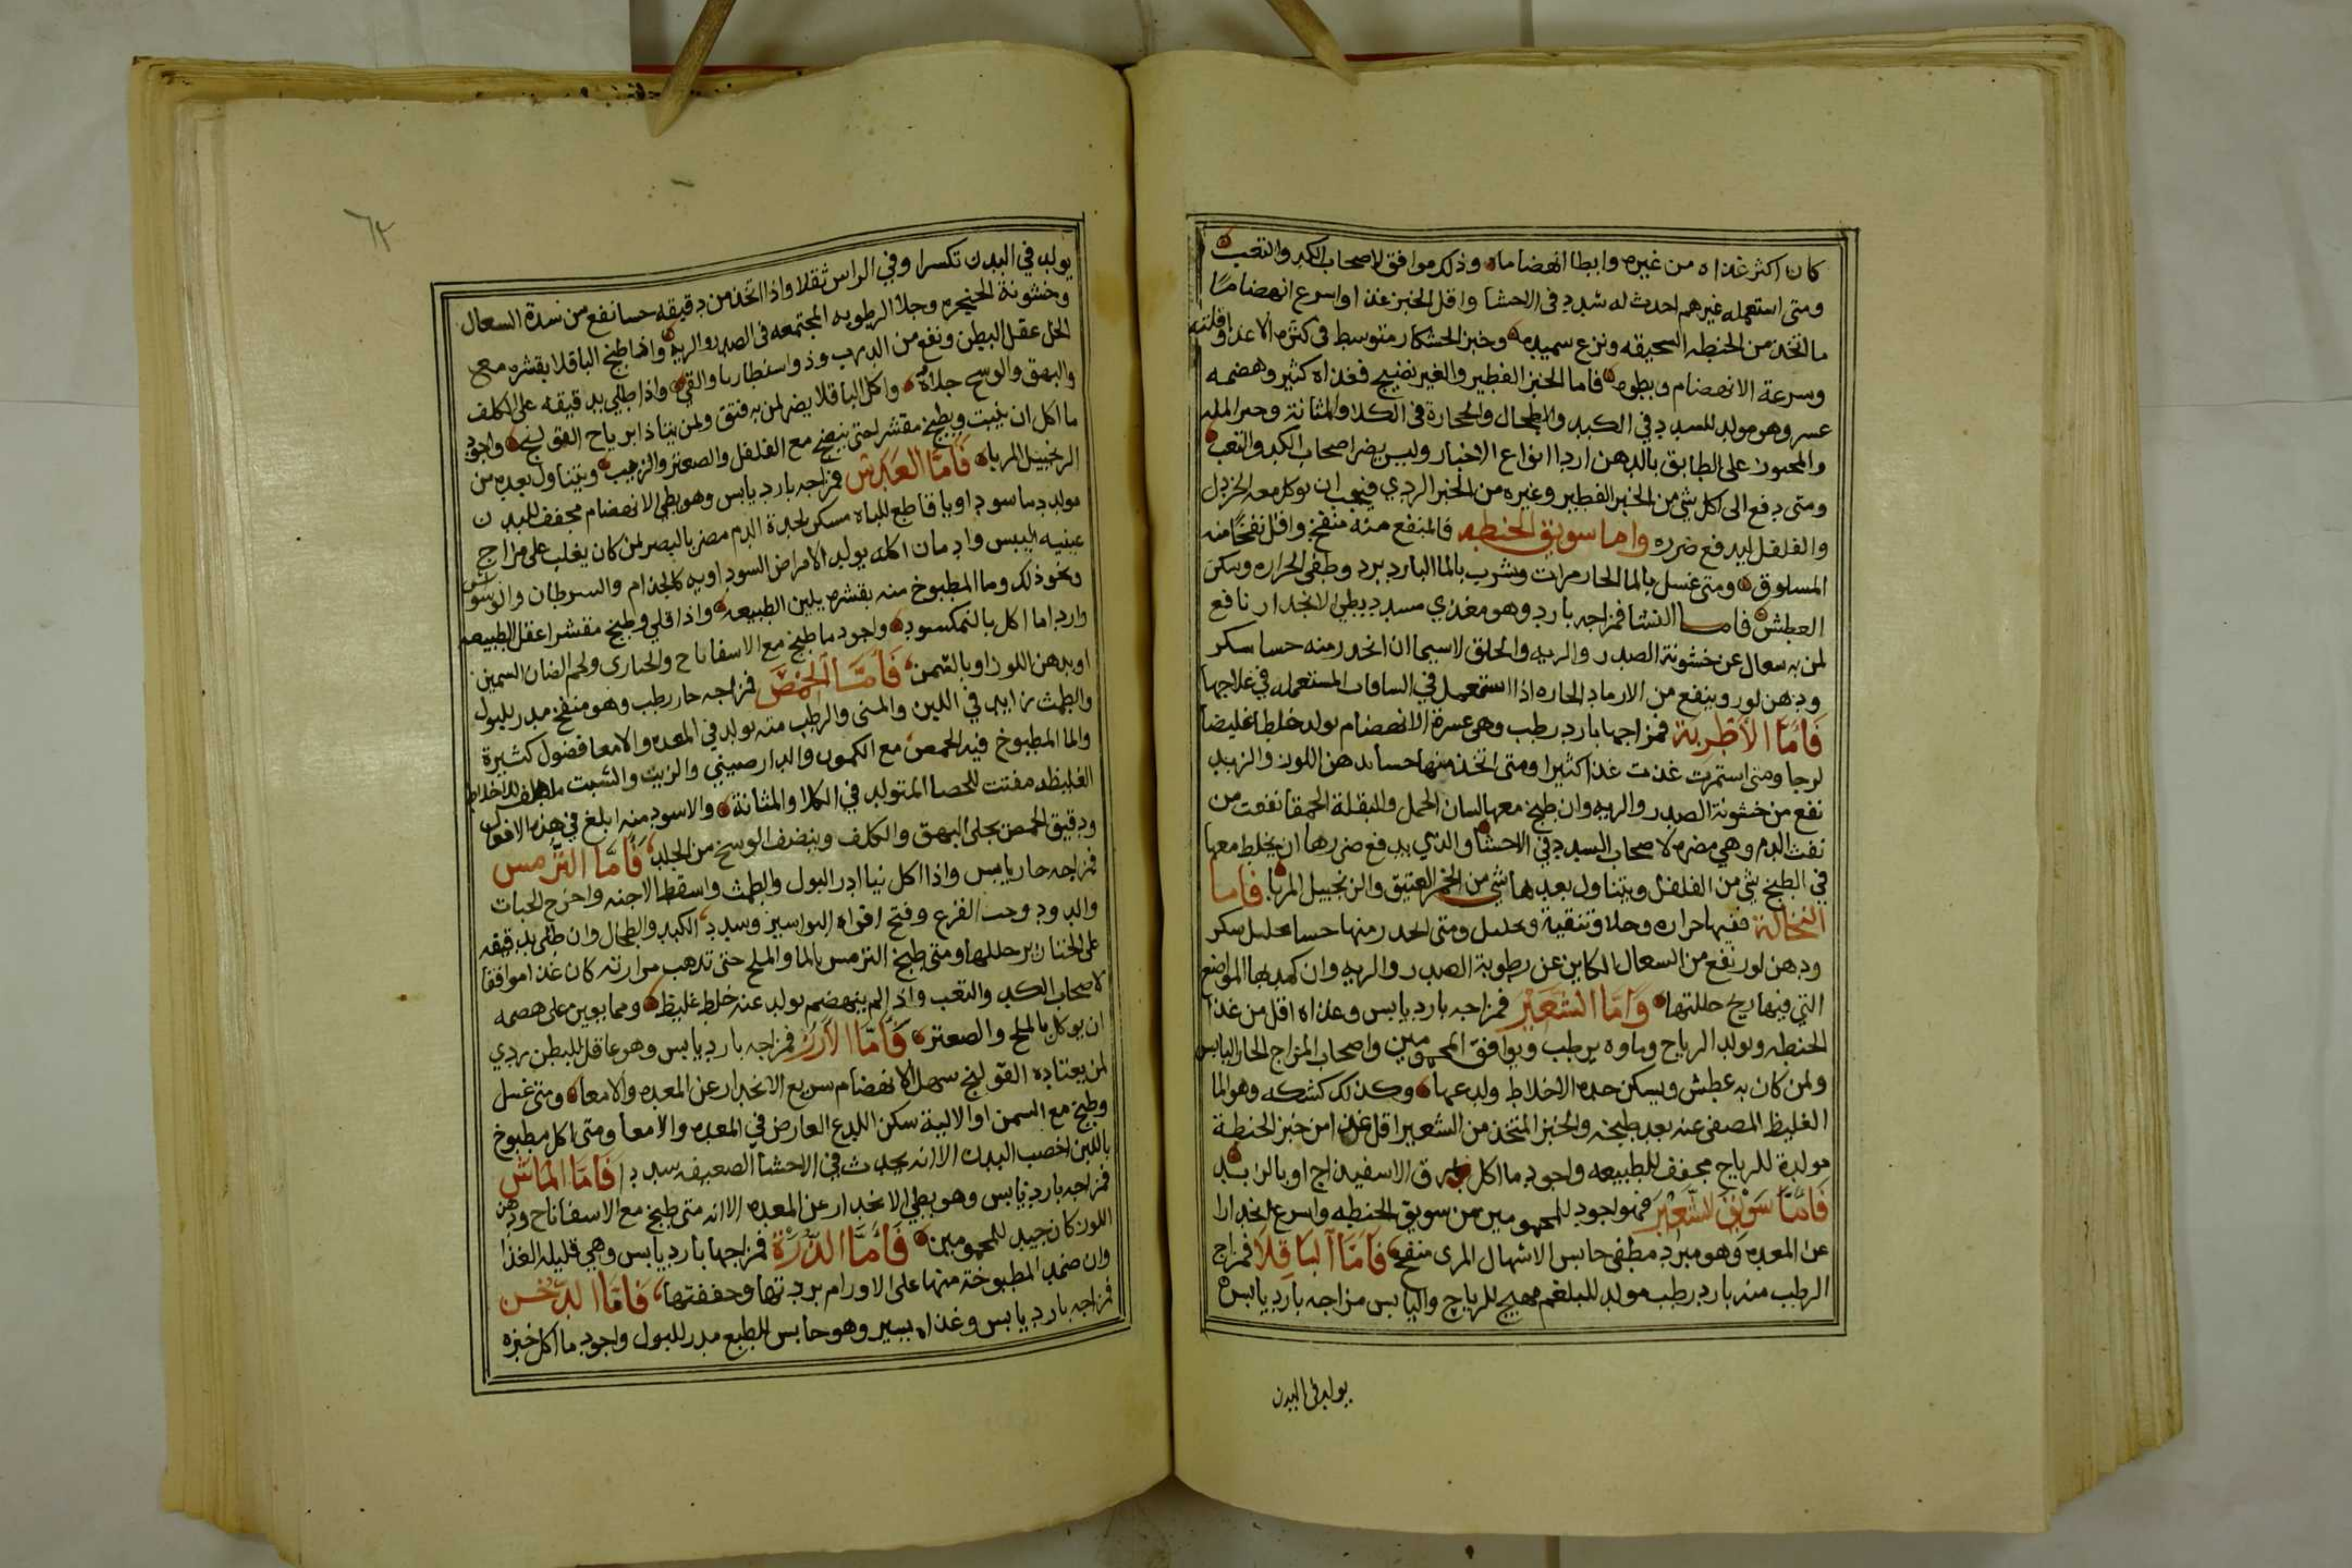 كان اكثر غذاه من غيره وابطا انهضاما وذلك موافق لاصحاب الكد والتعب
ومتى استعمله غيرهم احدث له سدد في الاحشا واقل الخبز غذا واسرع انهضاما
ما اتخذ من الحنطه السحيقه ونزع سميده وخبز الخشكار متوسط في كثرة الاغذا وقلته
وسرعة الانهضام وبطوه فاما الخبز الفطير والغير نضيج فغذاه كثير وهضمه
عسر وهو مولد للسدد في الكبد والطحال والحجارة في الكلا والمثانة وخبز المله
والمعجون على الطابق بالدهن اردا انواع الاخباز وليس يضر اصحاب الكد والتعب
ومتى دفع الى اكل شي من الخبز الفطير وغيره من الخبز الردي فيجب ان يوكل معه الخردل
والفلفل ليدفع ضرره واما سويق الحنطه فالمنقع منه منفخ واقل نفخا منه
المسلوق ومتى غسل بالما الحار مرات وشرب بالما البارد برد وطفى الحراره وسكن
العطش فاما النشا فمزاجه بارد وهو مغذي مسدد بطي الانحدار نافع
لمن به سعال عن خشونة الصدر والريه والحلق لاسيما ان اتخذ منه حسا بسكر
ودهن لوز وينفع من الارماد الحاره اذا استعمل في الشيافات المستعمله في علاجها
فاما الاطرية فمزاجها بارد رطب وهي عسرة الانهضام تولد خلطا غليضا
لزجا ومتى استمرت غذت غذا كثيرا ومتى اتخذ منها حسا بدهن اللوز والزبد
نفع من خشونة الصدر والريه وان طبخ معها لسان الحمل والبقلة الحمقا نفعت من
نفث الدم وهي مضره لاصحاب السدد في الاحشا والذي يدفع ضررها ان يخلط معها
في الطبخ شي من الفلفل ويتناول بعدها شي من الخمر العتيق والزنجبيل المربا فاما
النخالة ففيها حراره وجلا وتنقية وتحليل ومتى اتخذ منها حسا بسكر
ودهن لوز نفع من السعال الكاين عن رطوبة الصدر والريه وان كمد بها المواضع
التي فيها ريح حللتها واما الشعير فمزاجه بارد يابس وغذاه اقل من غذا
الحنطه ويولد الرياح وماوه يرطب ويوافق المحمومين واصحاب المزاج الحار اليابس
ولمن كان به عطش ويسكن حدة الاخلاط ولدعها وكذلك كشكه وهو الما
الغليظ المصفى عنه بعد طبخه والخبز المتخذ من الشعير اقل غذا من خبز الحنطة
مولدة للرياح مجفف للطبيعه واجود ما اكل بمرق الاسفيذاج او بالزبد
فاما سويق الشعير فهو اجود للمحمومين من سويق الحنطه واسرع انحدارا
عن المعده وهو مبرد مطفي حابس الاسهال المري منفخ فاما الباقلا فمزاج
الرطب منه بارد رطب مولد للبلغم مهيج للرياح واليابس مزاجه بارد يابس
يولد في البدن
٦٢
يولد في البدن تكسرا وفي الراس ثقلا واذا اتخذ من دقيقه حسا نفع من شدة السعال
وخشونة الحنجره وجلا الرطوبه المجتمعه في الصدر والريه واذا طبخ الباقلا بقشره مع
الخل عقل البطن ونفع من الدرب وذوسنطاريا والقي واذا طلي بدقيقه على الكلف
والبهق والوسخ جلاه واكل الباقلا يضر لمن به فتق ولمن يتاذا برياح القولنج واجود
ما اكل ان ينبت ويطبخ مقشر حتى ينضج مع الفلفل والصعتر والزيت ويتناول بعده من
الزنجبيل المربا فاما العدس فمزاجه بارد يابس وهو بطي الانهضام مجفف للبدن
مولد دما سوداويا قاطع للباه مسكن لحدة الدم مضر بالبصر لمن كان يغلب على مزاج
عينيه اليبس وادمان اكله يولد الامراض السوداويه كالجذام والسرطان والوسواس
ونحو ذلك وما المطبوخ منه بقشره يلين الطبيعه واذا قلي وطبخ مقشر اعقل الطبيعه
واردا ما اكل بالنمكسود واجود ما طبخ مع الاسفاناح والخبازى ولحم الضان السمين
او بدهن اللوز او بالسمن فاما الحمص فمزاجه حار رطب وهو منفخ مدر للبول
والطمث زايد في اللبن والمنى والرطب منه يولد في المعده والامعا فضول كثيرة
والما المطبوخ فيه الحمص مع الكمون والدارصيني والزيت والشبت ملطف للاخلاط
الغليظه مفتت للحصا المتولد في الكلا والمثانة والاسود منه ابلغ في هذه الافعال
ودقيق الحمص يجلي البهق والكلف وينضف الوسخ من الجلد فاما الترمس
فمزاجه حار يابس واذا اكل نيا ادر البول والطمث واسقط الاجنه واخرج الحيات
والدود وحب القرع وفتح افواه البواسير وسدد الكبد والطحال وان طلي بدقيقه
على الخنازير حللها ومتى طبخ الترمس بالما والملح حتى تذهب مرارته كان غذا موافقا
لاصحاب الكد والتعب واذا لم ينهضم تولد عنه خلط غليظ ومما يعين على هضمه
ان يوكل بالملح والصعتر فاما الارز فمزاجه بارد يابس وهو عاقل للبطن ردي
لمن يعتاده القولنج سهل الانهضام سريع الانحدار عن المعده والامعا ومتى غسل
وطبخ مع السمن او الالية سكن اللدع العارض في المعده والامعا ومتى اكل مطبوخ
باللبن اخصب البدن الا انه يحدث في الاحشا الضعيفه سددا فاما الماش
فمزاجه بارد يابس وهو بطي الانحدار عن المعده الا انه متى طبخ مع الاسفاناح ودهن
اللوز كان جيد للمحمومين فاما الذرة فمزاجها بارد يابس وهي قليله الغذا
وان ضمد المطبوخة منها على الاورام بردتها وجففتها فاما الدخن
فمزاجه بارد يابس وغذاه يسير وهو حابس للطبع مدر للبول واجود ما اكل خبزه